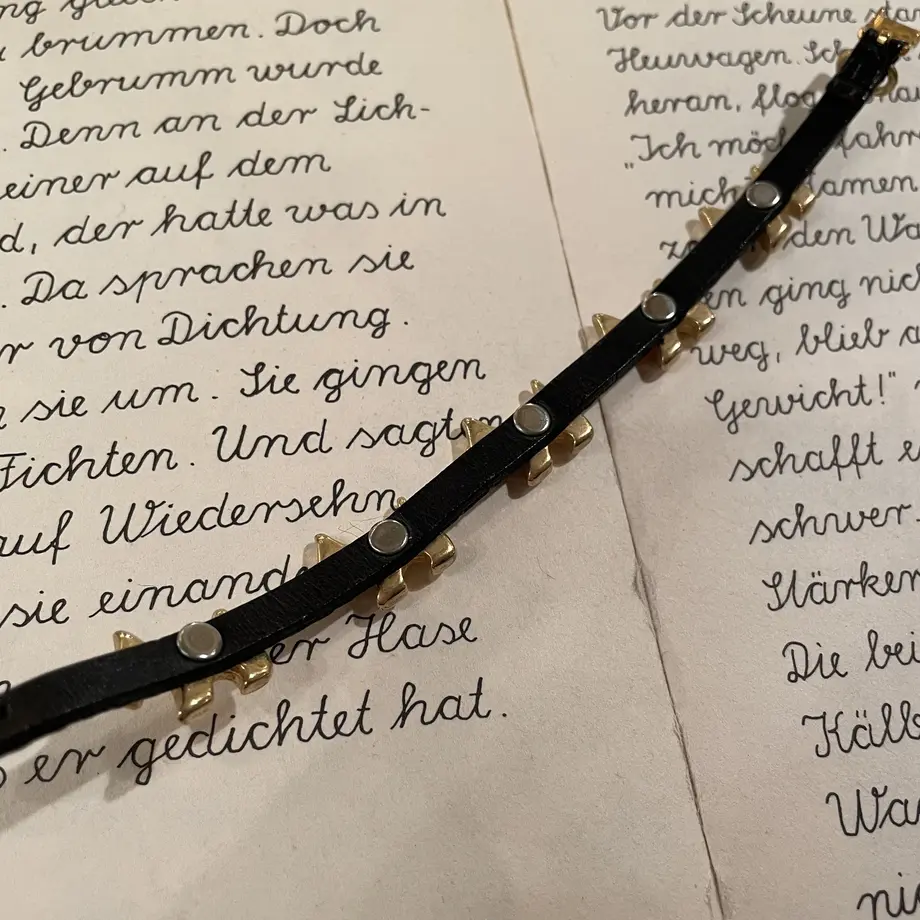 brummen. Doch
Gebrumm wurde
. Denn an der Lich-
einer auf dem
d, der hatte was in
. Da sprachen sie
r von Dichtung.
sie um. Sie gingen
Fichten. Und sagten
auf Wiedersehn,
sie einand
er Hase
er gedichtet hat.
Vor der Scheune stan
Heuwagen. Sch
heran, flog
"Ich möch fahr
mich amen
den Wa
en ging nich
weg, blieb a
Gewicht!"
schafft e
schwer.
Stärker
Die bei
Kälb
Wa
ni